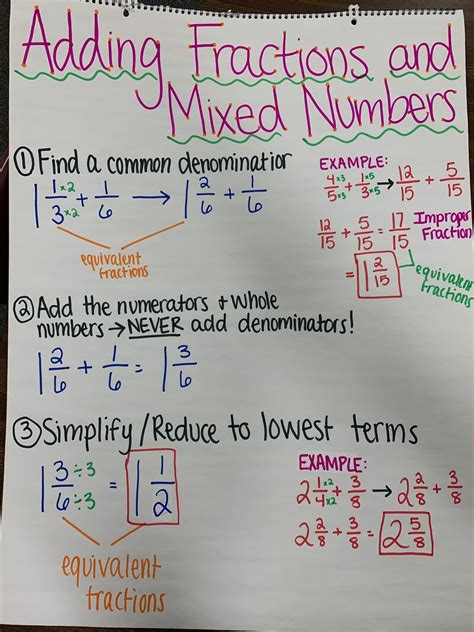 Adding Fractions and
Mixed Numbers
① Find a common denominatior
1 1/3 ×2 ×2 + 1/6 → 1 2/6 + 1/6
equivalent
fractions
EXAMPLE:
4/5 ×3 ×3 + 1/3 ×5 ×5 → 12/15 + 5/15
12/15 + 5/15 = 17/15 Improper
Fraction
= 1 2/15 equivalent
fractions
② Add the numerators + whole
numbers → NEVER add denominators!
1 2/6 + 1/6 = 1 3/6
③ Simplify/Reduce to lowest terms
1 3/6 ÷3 ÷3 = 1 1/2
equivalent
fractions
EXAMPLE:
2 1/4 ×2 ×2 + 3/8 → 2 2/8 + 3/8
2 2/8 + 3/8 = 2 5/8